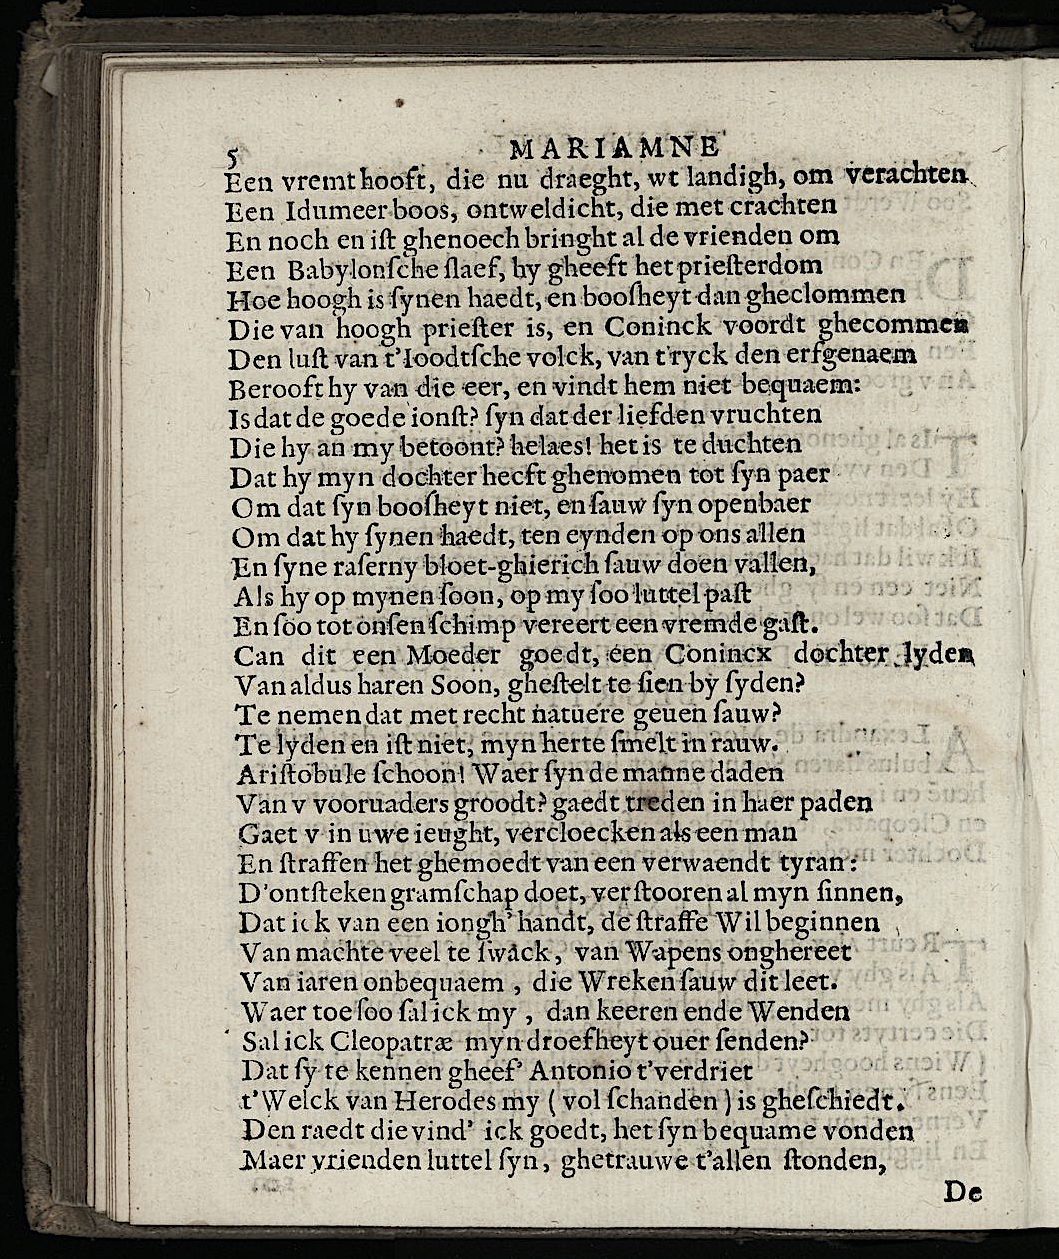 5 MARIAMNE
Een vremt hooft, die nu draeght, wt landigh, om verachten
Een Idumeer boos, ontweldicht, die met crachten
En noch en iſt ghenoech bringht al de vrienden om
Een Babylonſche ſlaef, hy gheeft het prieſterdom
Hoe hoogh is ſynen haedt, en booſheyt dan gheclommen
Die van hoogh prieſter is, en Coninck voordt ghecommen
Den luſt van t'Ioodtſche volck, van t'ryck den erfgenaem
Berooft hy van die eer, en vindt hem niet bequaem:
Is dat de goede ionſt? ſyn dat der liefden vruchten
Die hy an my betoont? helaes! het is te duchten
Dat hy myn dochter heeft ghenomen tot ſyn paer
Om dat ſyn booſheyt niet, en ſauw ſyn openbaer
Om dat hy ſynen haedt, ten eynden op ons allen
En ſyne raſerny bloet-ghierich ſauw doen vallen,
Als hy op mynen ſoon, op my ſoo luttel paſt
En ſoo tot onſen ſchimp vereert een vremde gaſt.
Can dit een Moeder goedt, een Conincx dochter lyden
Van aldus haren Soon, gheſtelt te ſien by ſyden?
Te nemen dat met recht natuere geuen ſauw?
Te lyden en iſt niet, myn herte ſmelt in rauw.
Ariſtobule ſchoon! Waer ſyn de manne daden
Van v vooruaders groodt? gaedt treden in haer paden
Gaet v in uwe ieught, vercloecken als een man
En ſtraffen het ghemoedt van een verwaendt tyran:
D'ontſteken gramſchap doet, verſtooren al myn ſinnen,
Dat ick van een iongh' handt, de ſtraffe Wil beginnen
Van machte veel te ſwack, van Wapens onghereet
Van iaren onbequaem, die Wreken ſauw dit leet.
Waer toe ſoo ſal ick my, dan keeren ende Wenden
Sal ick Cleopatræ myn droefheyt ouer ſenden?
Dat ſy te kennen gheef' Antonio t'verdriet
t'Welck van Herodes my (vol ſchanden) is gheſchiedt.
Den raedt die vind' ick goedt, het ſyn bequame vonden
Maer vrienden luttel ſyn, ghetrauwe t'allen ſtonden,
De